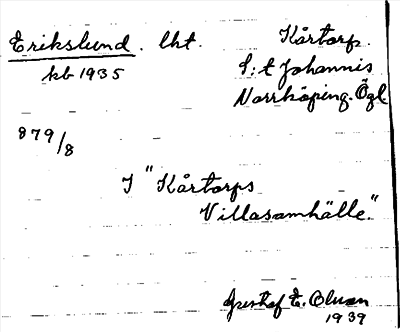 Erikslund. lht. Kårtorp.
kb 1935 S:t Johannis
Norrköping. Ögl.
879/8
I "Kårtorps
Villasamhälle."
Gustaf E. Olsson
1939